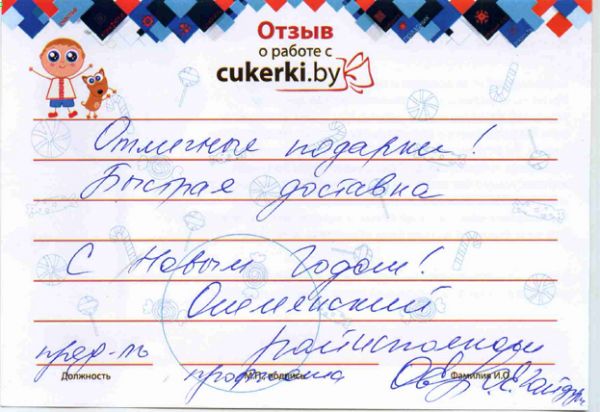 Отзыв
о работе с
cukerki.by
Отличные подарки!
Быстрая доставка
С Новым Годом!
Ошмянский
райисполком
пред-ль профсоюза
Должность
Фамилия И.О.